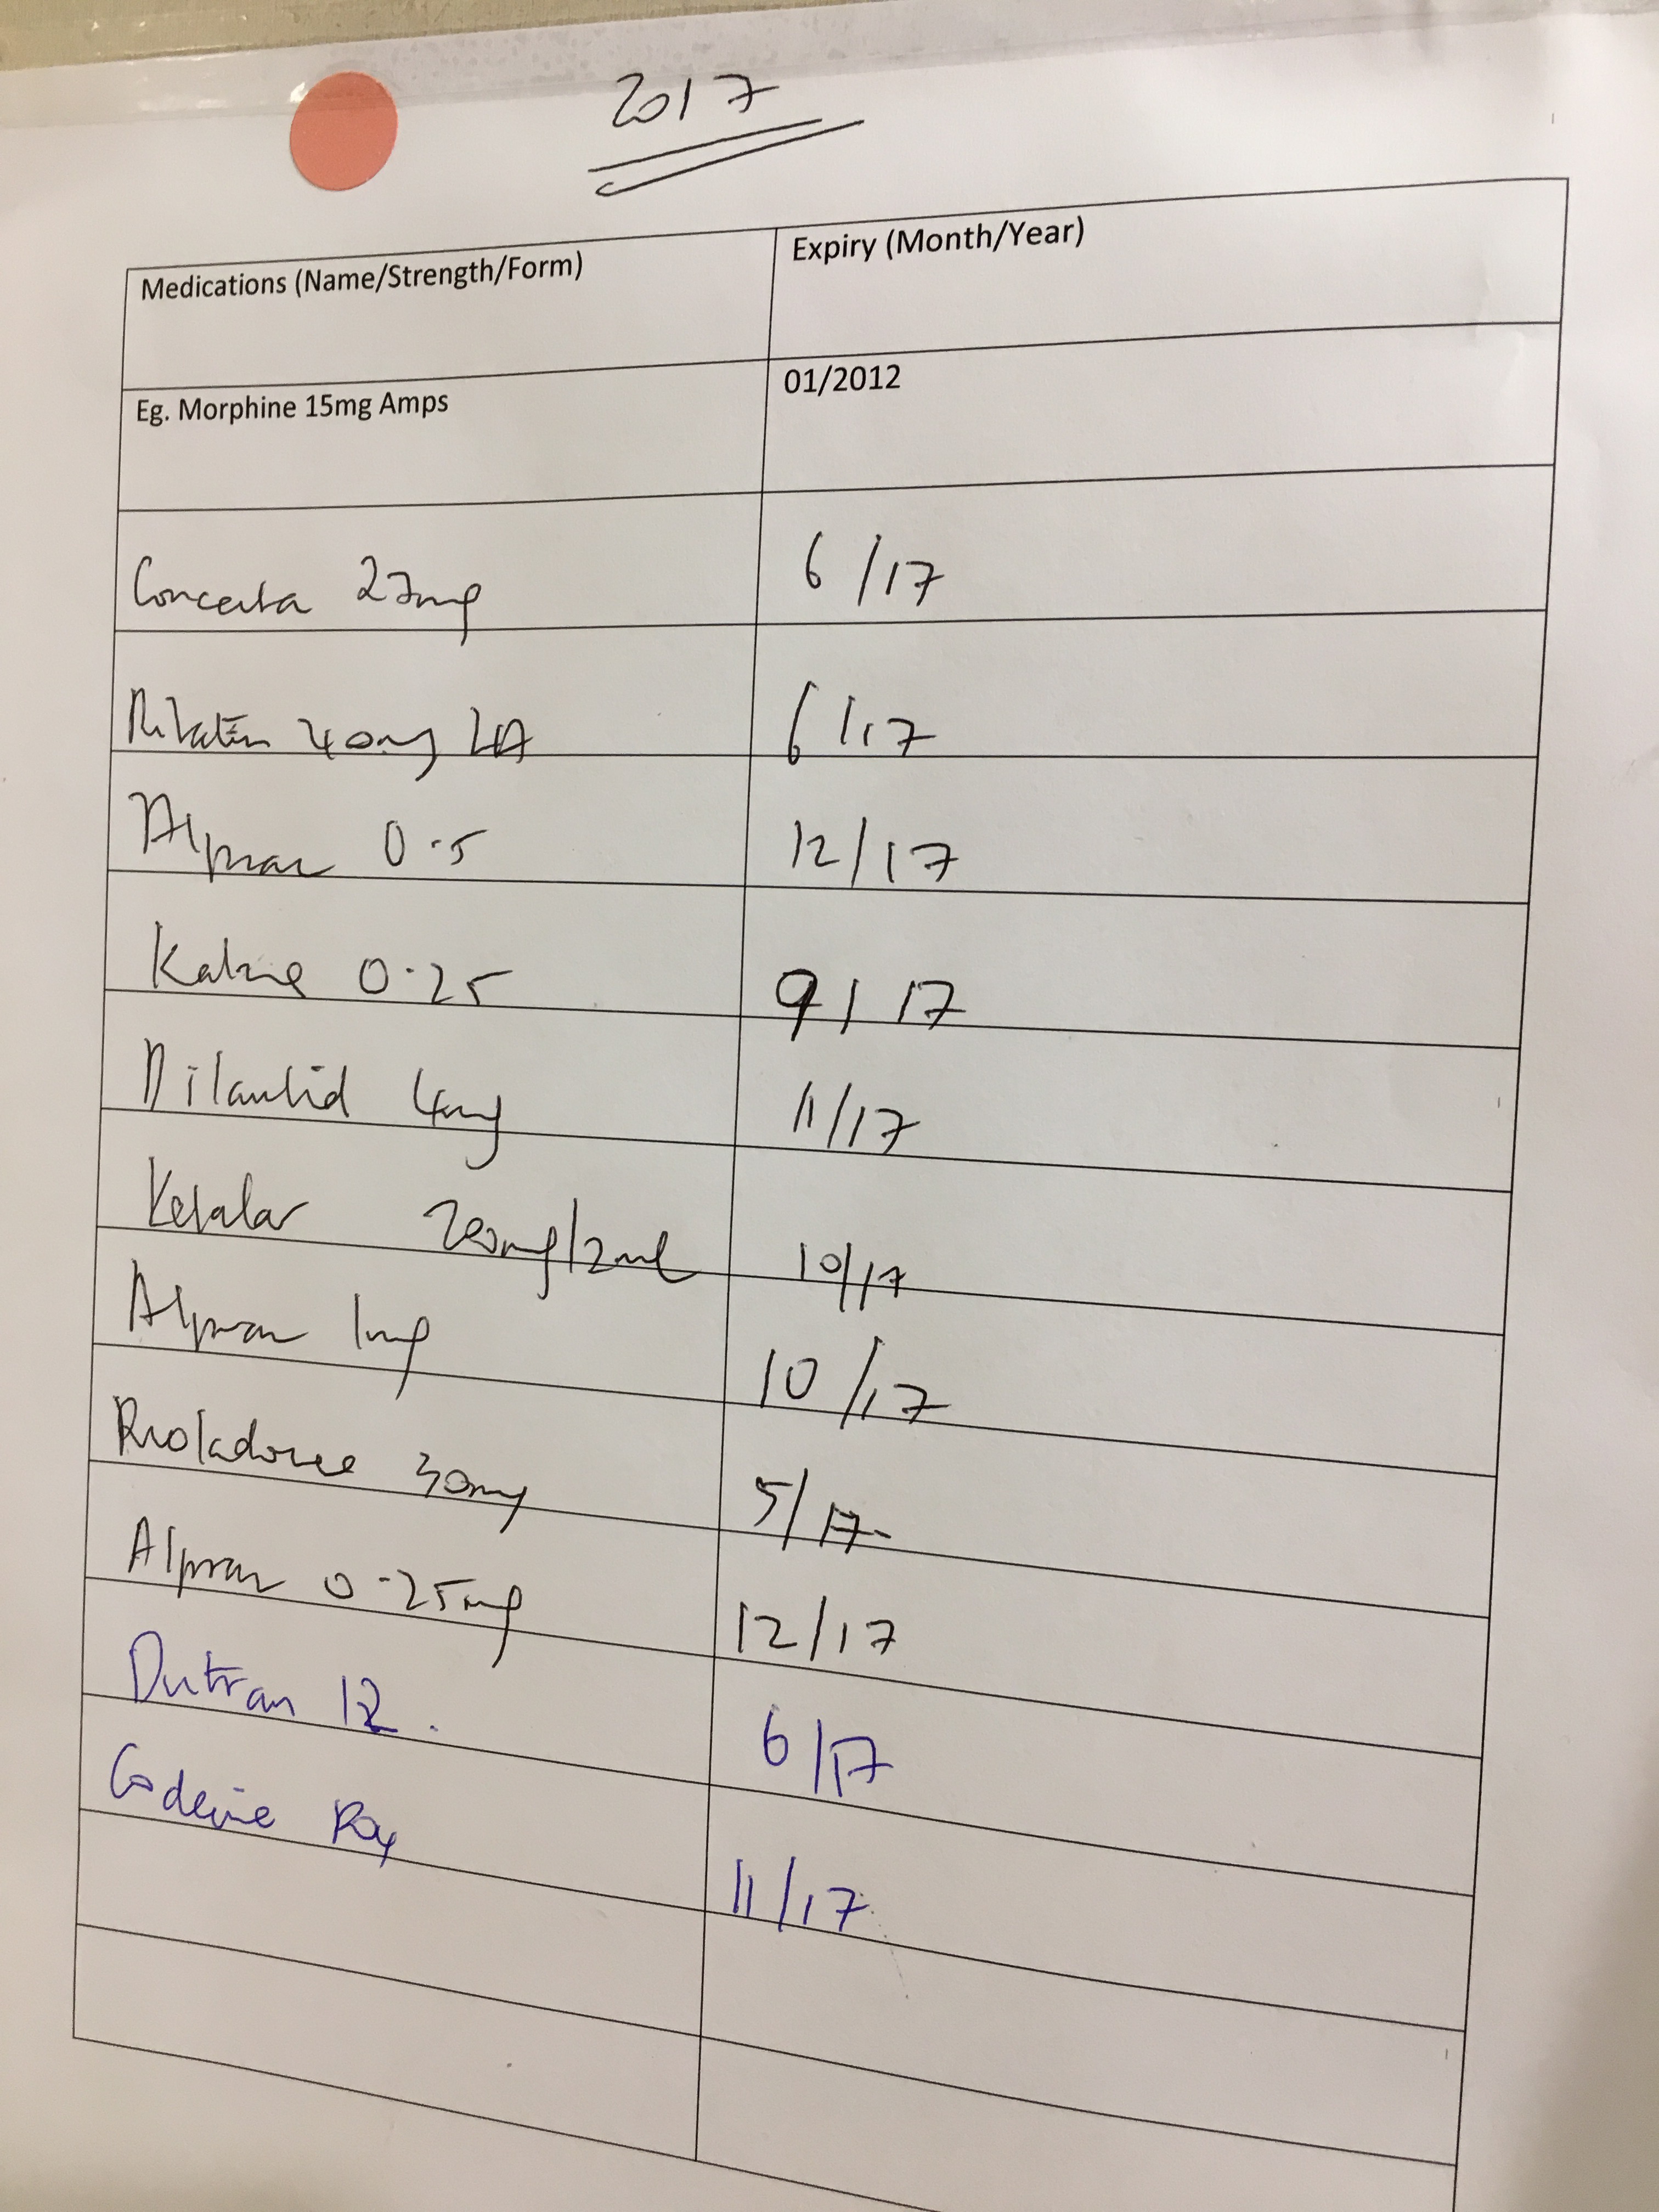 2017
Medications (Name/Strength/Form) Expiry (Month/Year)
Eg. Morphine 15mg Amps 01/2012
Concerta 27mg 6/17
Ritalin 40mg LA 6/17
Alprax 0.5 12/17
Kalma 0.25 9/17
Dilaudid 4mg 11/17
Ketalar 200mg/2ml 10/17
Alprax 1mg 10/17
30mg 5/17
Alprax 0.25mg 12/17
Dutran 12. 6/17
Codeine 11/17